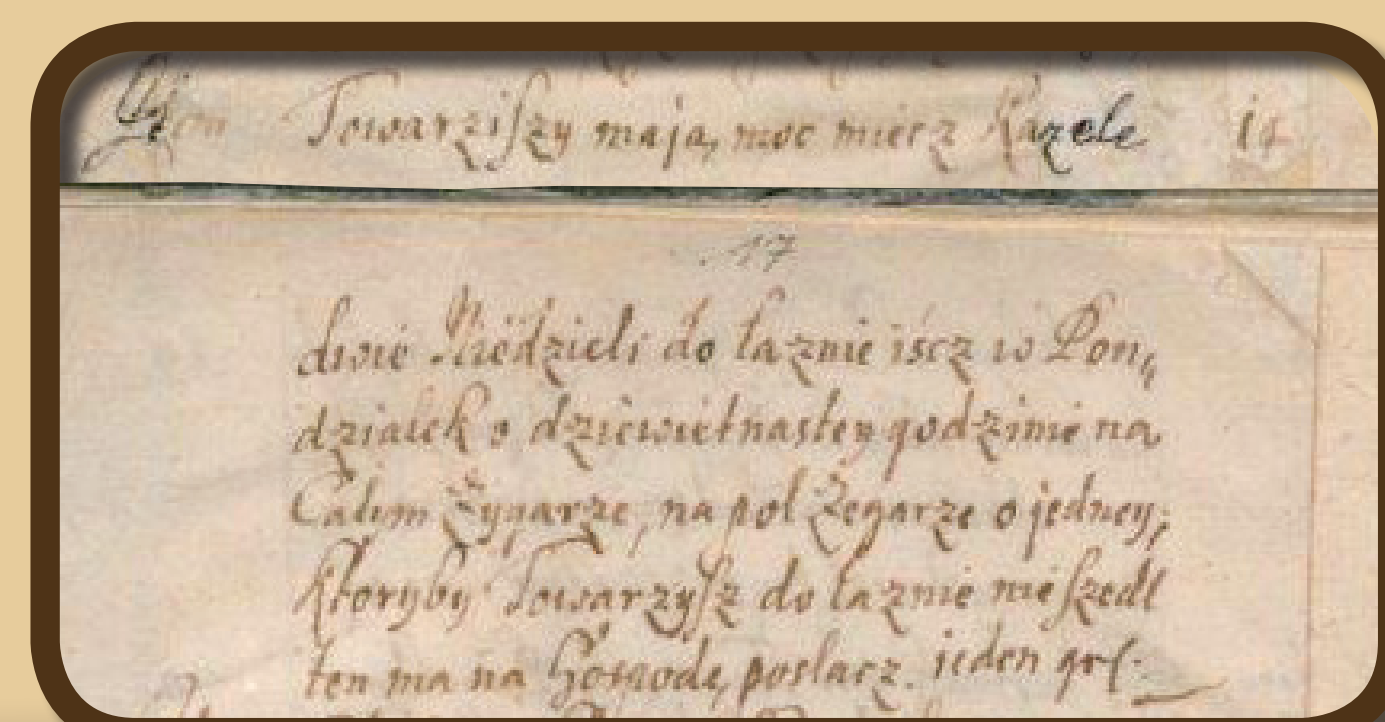 Towarziszy mają moc miecz Kazele 14
17
dwie Niedzieli do łaznie iścz w Pon„
działek o dziewietnastey godzinie na
Całym Zygarze, na poł Zegarze o jedney,
Ktoryby Towarzysz do łaznie nie szedł
ten ma na Gospodę posłacz. jeden grſ.